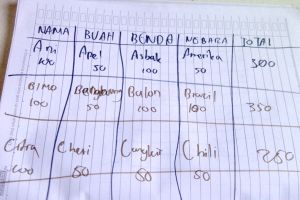 NAMA BUAH BENDA NEGARA TOTAL
Ani Apel Asbak Amerika 300
100 50 100 50
BIMO Balon Brazil 350
100 50 100 100
Citra Cheri Cangkir Chili 250
100 50 50 50